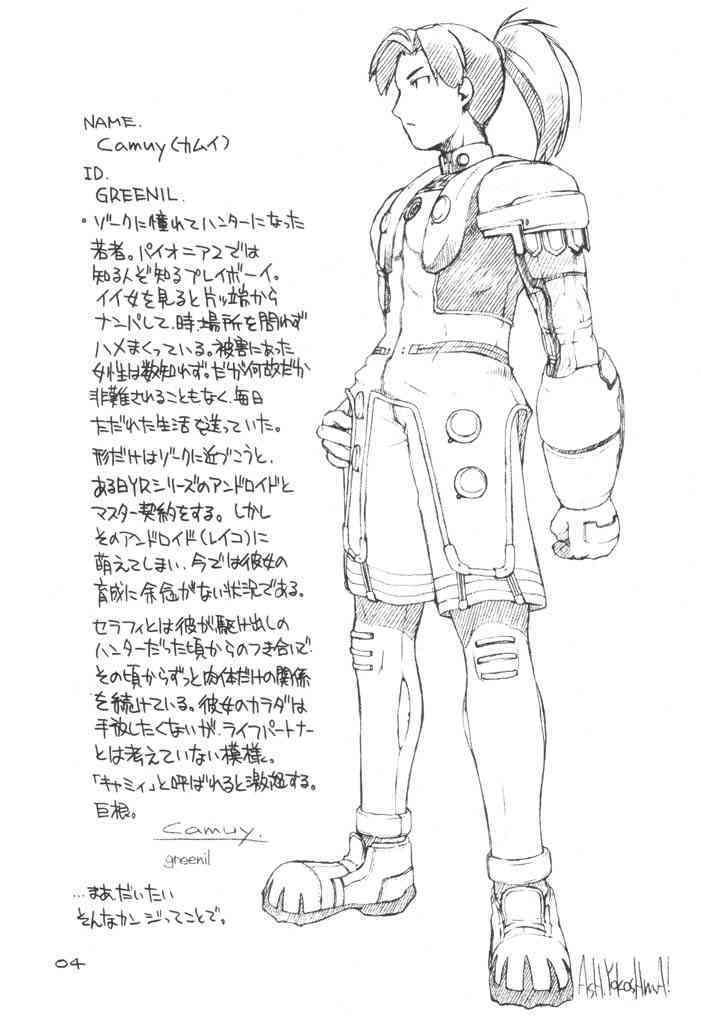 NAME.
Camuy(カムイ)
ID.
GREENIL.
・ゾークに憧れてハンターになった
若者。パイオニア2では
知る人ぞ知るプレイボーイ。
イイ女を見ると片ッ端から
ナンパして、時・場所を問わず
ハメまくっている。被害にあった
女性は数知れず。だが何故だか
非難されることもなく、毎日
ただれた生活を送っていた。
形だけはゾークに近づこうと、
ある日YRシリーズのアンドロイドと
マスター契約をする。しかし
そのアンドロイド(レイコ)に
萌えてしまい、今では彼女の
育成に余念がない状況である。
セラフィとは彼が駆け出しの
ハンターだった頃からのつき合いで、
その頃からずっと肉体だけの関係
を続けている。彼女のカラダは
手放したくないが、ライフパートナー
とは考えていない模様。
「キャミィ」と呼ばれると激怒する。
巨根。
Camuy.
greenil
...まあだいたい
そんなカンジってことで。
04
AsH.YokosHimA!